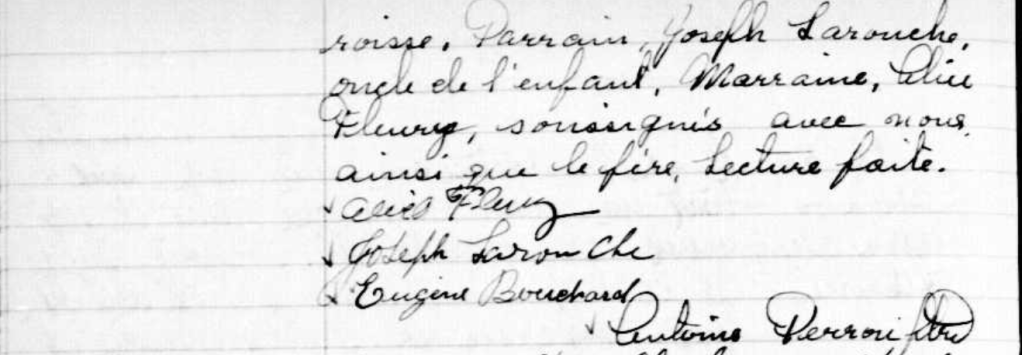 roisse. Parrain, Joseph Larouche,
oncle de l'enfant, Marraine, Alice
Fleury, soussignés avec nous
ainsi que le père, Lecture faite.
Alice Fleury
Joseph Larouche
Eugène Bouchard
Antoine Perron ptre